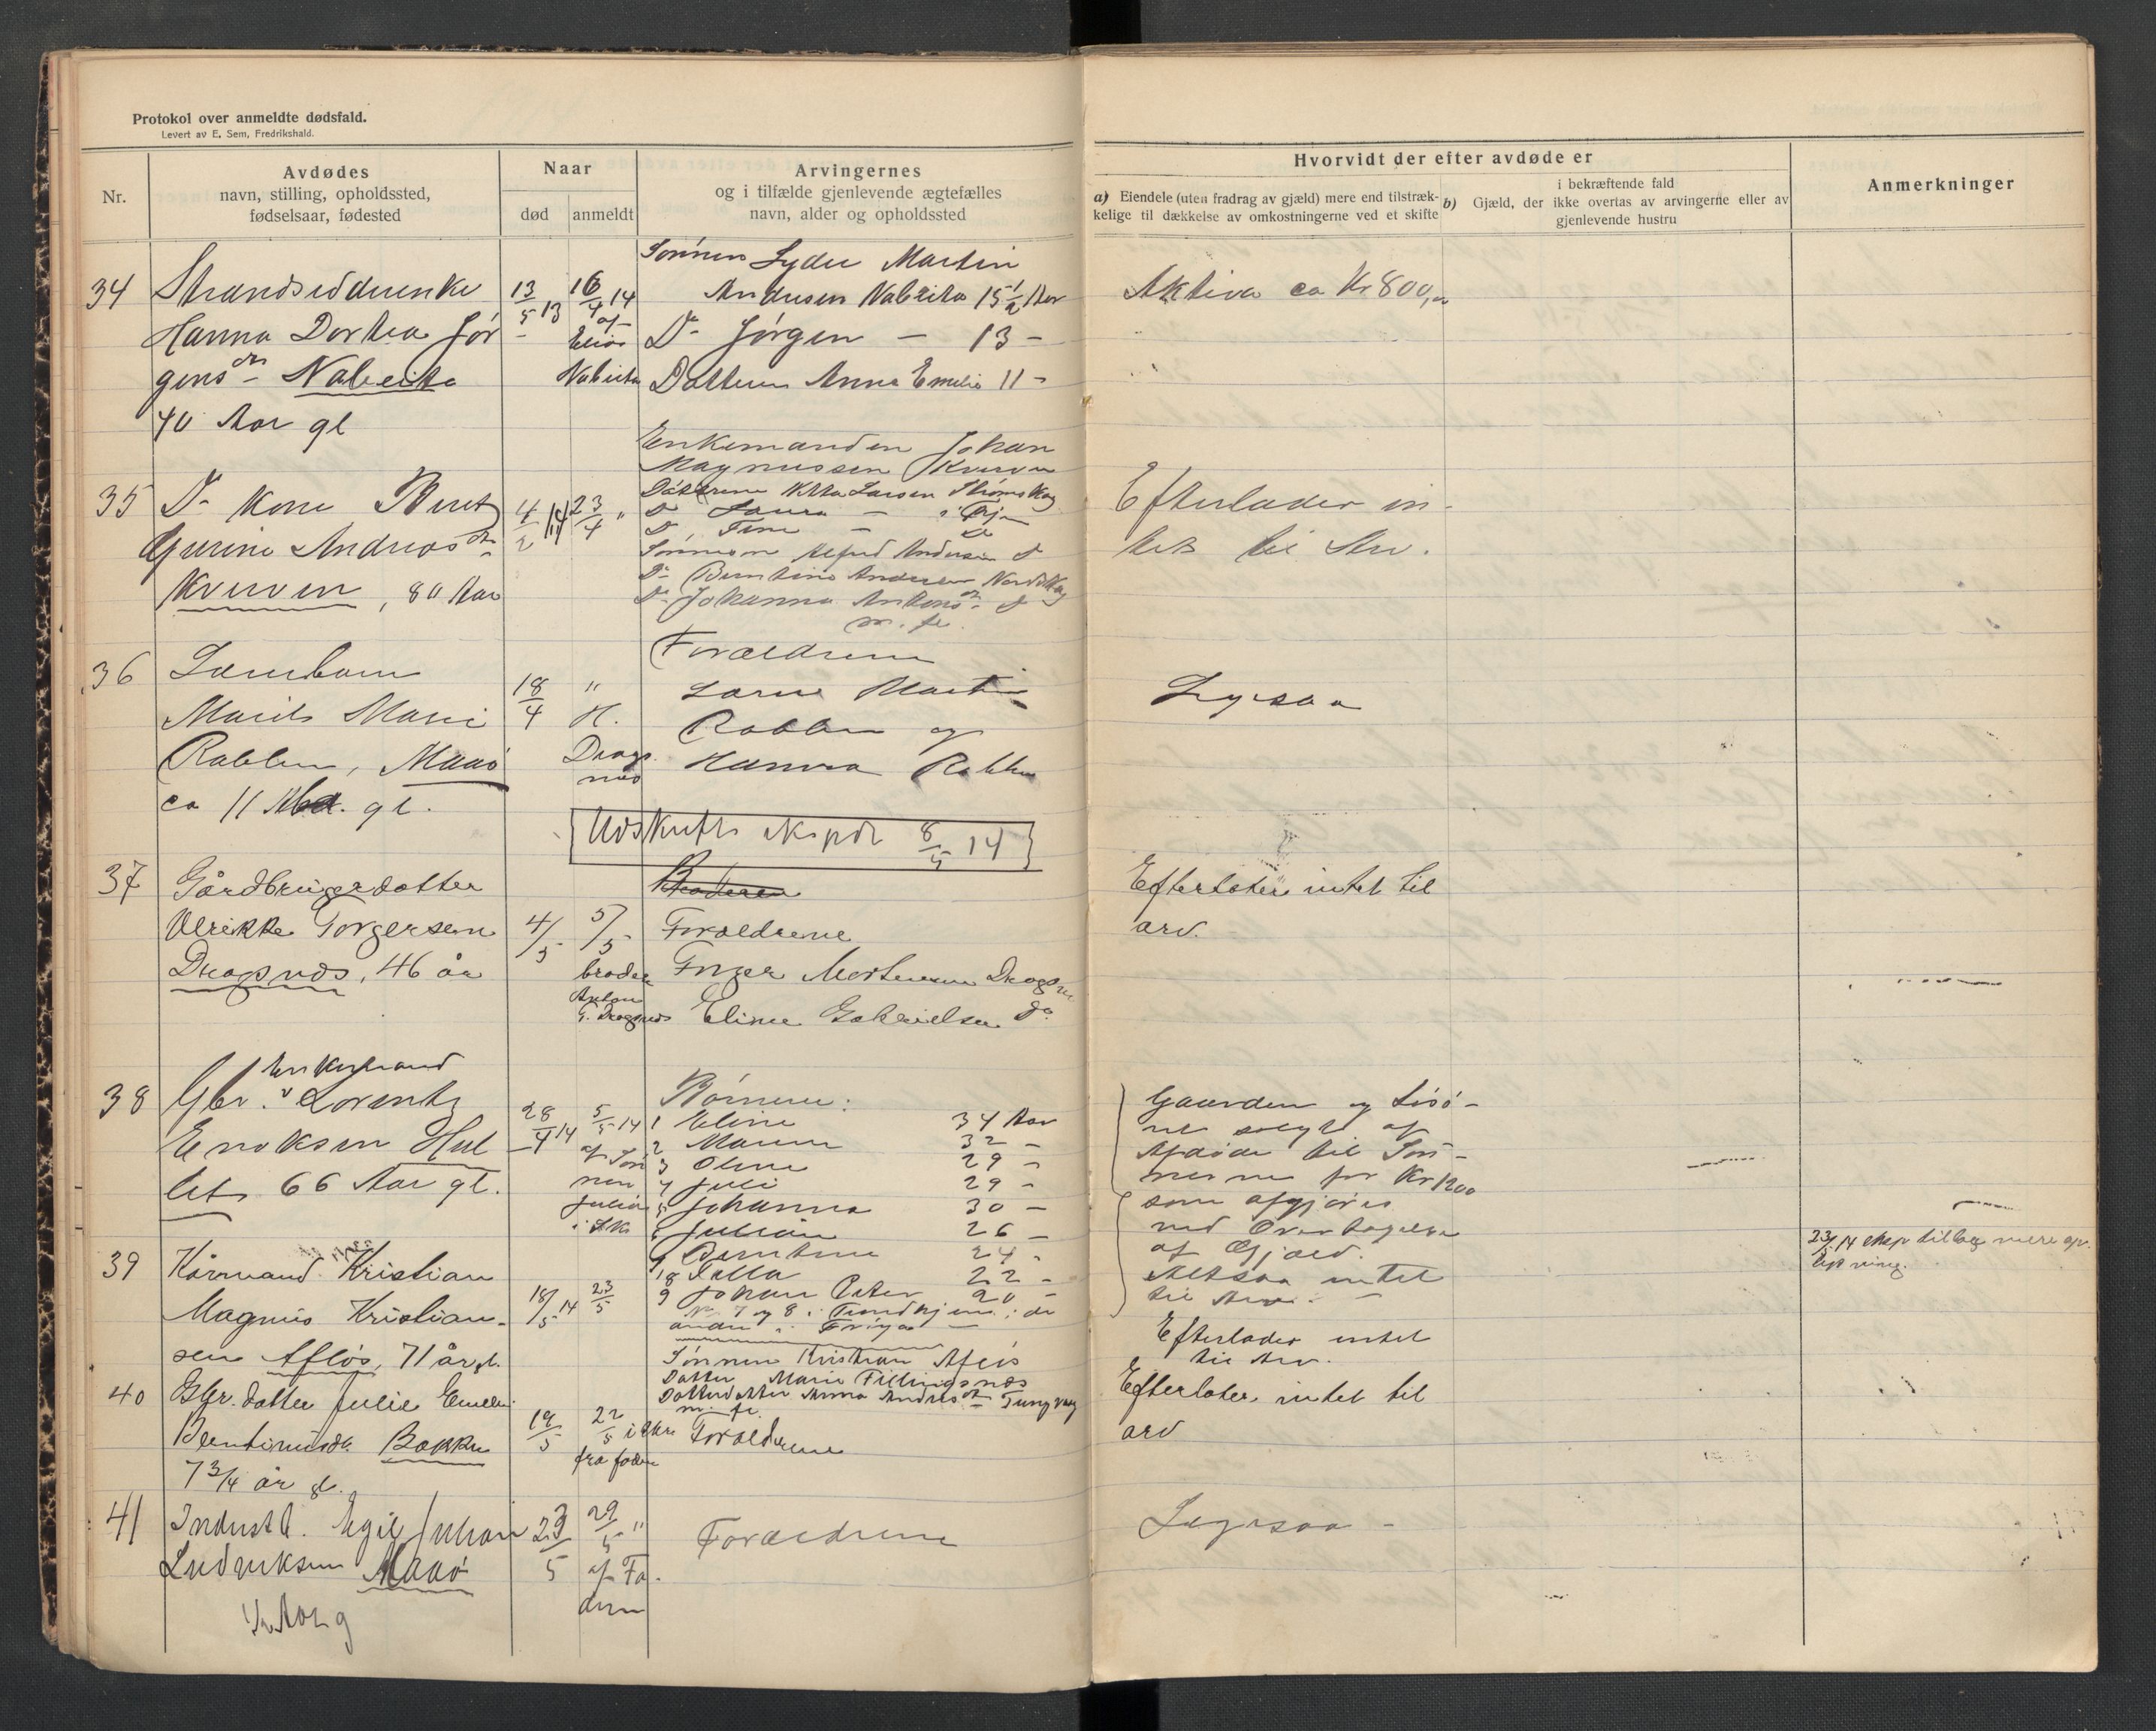 Protokol over anmeldte dødsfald.
Levert av E. Sem, Fredrikshald.
Nr.
Avdødes
navn, stilling, opholdssted,
fødselsaar, fødested
Naar
død
anmeldt
Arvingernes
og i tilfælde gjenlevende ægtefælles
navn, alder og opholdssted
Hvorvidt der efter avdøde er
a) Eiendele (uten fradrag av gjæld) mere end tilstræk-
kelige til dækkelse av omkostningerne ved et skifte
i bekræftende fald
b) Gjæld, der ikke overtas av arvingerne eller av
gjenlevende hustru
Anmerkninger
34
Strandsidderenke
Hanna Dortea Jør
gens dtr Nabeita
40 Aar gl
13/5 13
16/4 14
af
Elias
Nabeita
Sønnen Martin
Andersen Nabeita 15 1/2 Aar
Do Jørgen - 13 -
Datteren Anna Emilie 11 -
Aktiva ca Kr 800,
35
Do Kone Beret
Gurine Andreas dtr
Kverven, 80 Aar
4/2 14
23/4 "
Enkemanden Johan
Magnussen Kverven
Døtrene Larsen
Do Laura -
Do Fine -
Sønnen Alfred Andersen
Do Berntine Andersen
Do Johanna Antons dtr
m. fl.
Efterlader in-
tet til Arv.
36
Larm
Marit Marie
Rabben, Maaø
ca 11 Md. gl.
18/4
"
H.
Dragsnæs
Forældrene
Martin
Rabben og
Hanna Rabben
Ligesaa
Udskrift ekspdt 8/5 14
37
Gårdbrugerdatter
Ulrikke Torgersen
Dragsnæs, 46 år
4/5
5/5
broder
Anton
T. Dragsnæs
Broderen
Forældrene
Mortensen Dragsnæs
Eline Gabrielsen Do
Efterlater intet til
arv.
38
Enkemand
Gbr. v Lorentz
Enoksen Hul
let 66 Aar gl.
28/4 14
5/5 14
af Søn
nen
Julian
Børnene:
1 Eline 34 Aar
2 32 -
3 Oline 29 -
4 Juli 29 -
5 Johanna 30 -
6 Julian 26 -
7 Berntine 24 -
8 22 -
9 Johan Peter 20 -
No 7 og 8 i Trondhjem; de
andre i Frøya
Gaarden og Løsø-
ret solgt af
Afdøde til Søn-
nerne for Kr 1200
som afgjøres
ved Overtagelse
af Gjæld.
Altsaa intet
til Arv. -
39
Kårmand Kristian
Magnus Kristian-
sen Afløs, 71 år gl.
18/5 14
23/5
Sønnen Kristian Afløs
Datter Marie Fillingsnæs
Datterdatter Anna Andreas dtr
m. fl.
Efterlader intet
til Arv.
40
Gbr. datter Julie
Berntines dtr. Bakken
7 3/4 år gl.
19/5
22/5
fra faderen
Forældrene
Efterlater intet til
arv
41
Indust b. Egil Johan
Ludviksen Maaø
1/2 Aar g
23/5
29/5 "
af Fa-
deren
Forældrene
Ligesaa -